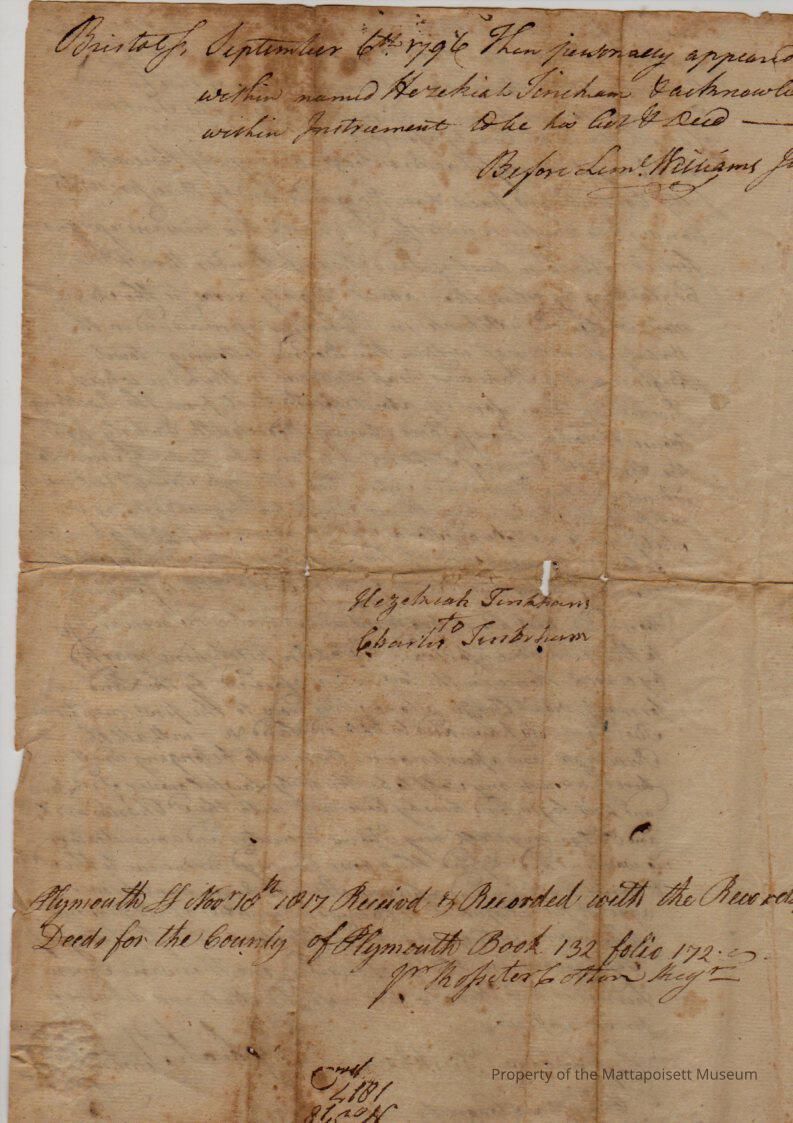 Bristol ss. September 6th 1796 Then personally appeared
within named Hezekiah Tincham & acknowl
within Instrument to be his Act & Deed —
Before Leml. Williams Ju
Hezekiah Tinkham
to
Charles Tinkham
Plymouth SS Novr 18th 1817 Receivd & Recorded with the Records
Deeds for the County of Plymouth Book 132 folio 172.
pr Rossiter Cotton Regr
1817
Property of the Mattapoisett Museum